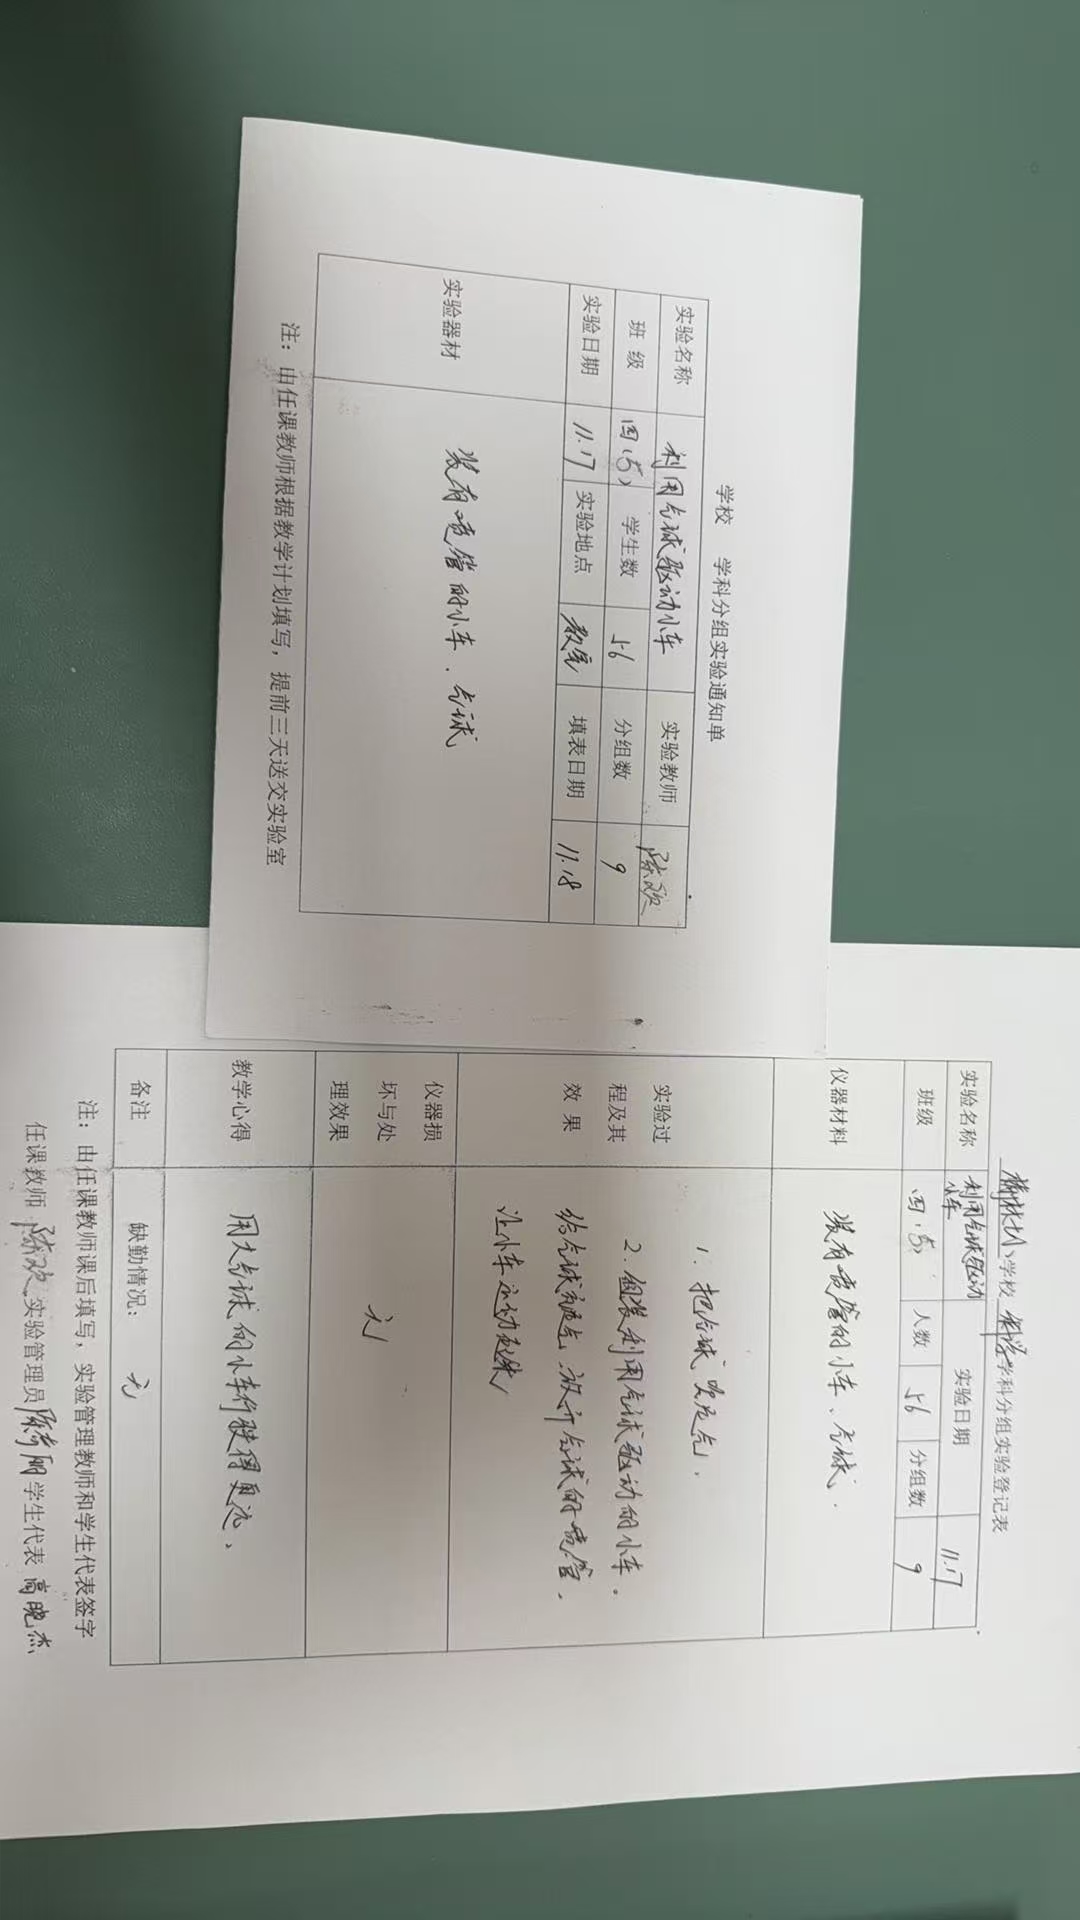 学校 学科分组实验通知单
实验名称 利用气球驱动小车 实验教师 陈欢
班 级 四(5) 学生数 56 分组数 9
实验日期 11.17 实验地点 教室 填表日期 11.18
实验器材 装有喷管的小车、气球
注：由任课教师根据教学计划填写，提前三天送交实验室
学校 科学学科分组实验登记表
实验名称 利用气球驱动 实验日期 11.17
小车
班级 四(5) 人数 56 分组数 9
仪器材料 装有喷管的小车、气球.
实验过
程及其
效 果
1. 把气球
2. 组装利用气球驱动的小车.
给气球 放开气球的喷管,
让小车运动起来
仪器损
坏与处
理效果
无
教学心得 用大气球的小车行驶得更远,
备注 缺勤情况: 无
注：由任课教师课后填写，实验管理教师和学生代表签字
任课教师 陈欢 实验管理员 学生代表 高晚杰